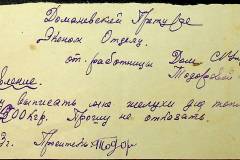 Доманевской Претуре
Эконом Отделу.
от. работницы Дом.
Тодоровой
вление.
выписать мне желухи для топ
500 кгр. Прошу не отказать.
3 г. Проситель Тодор